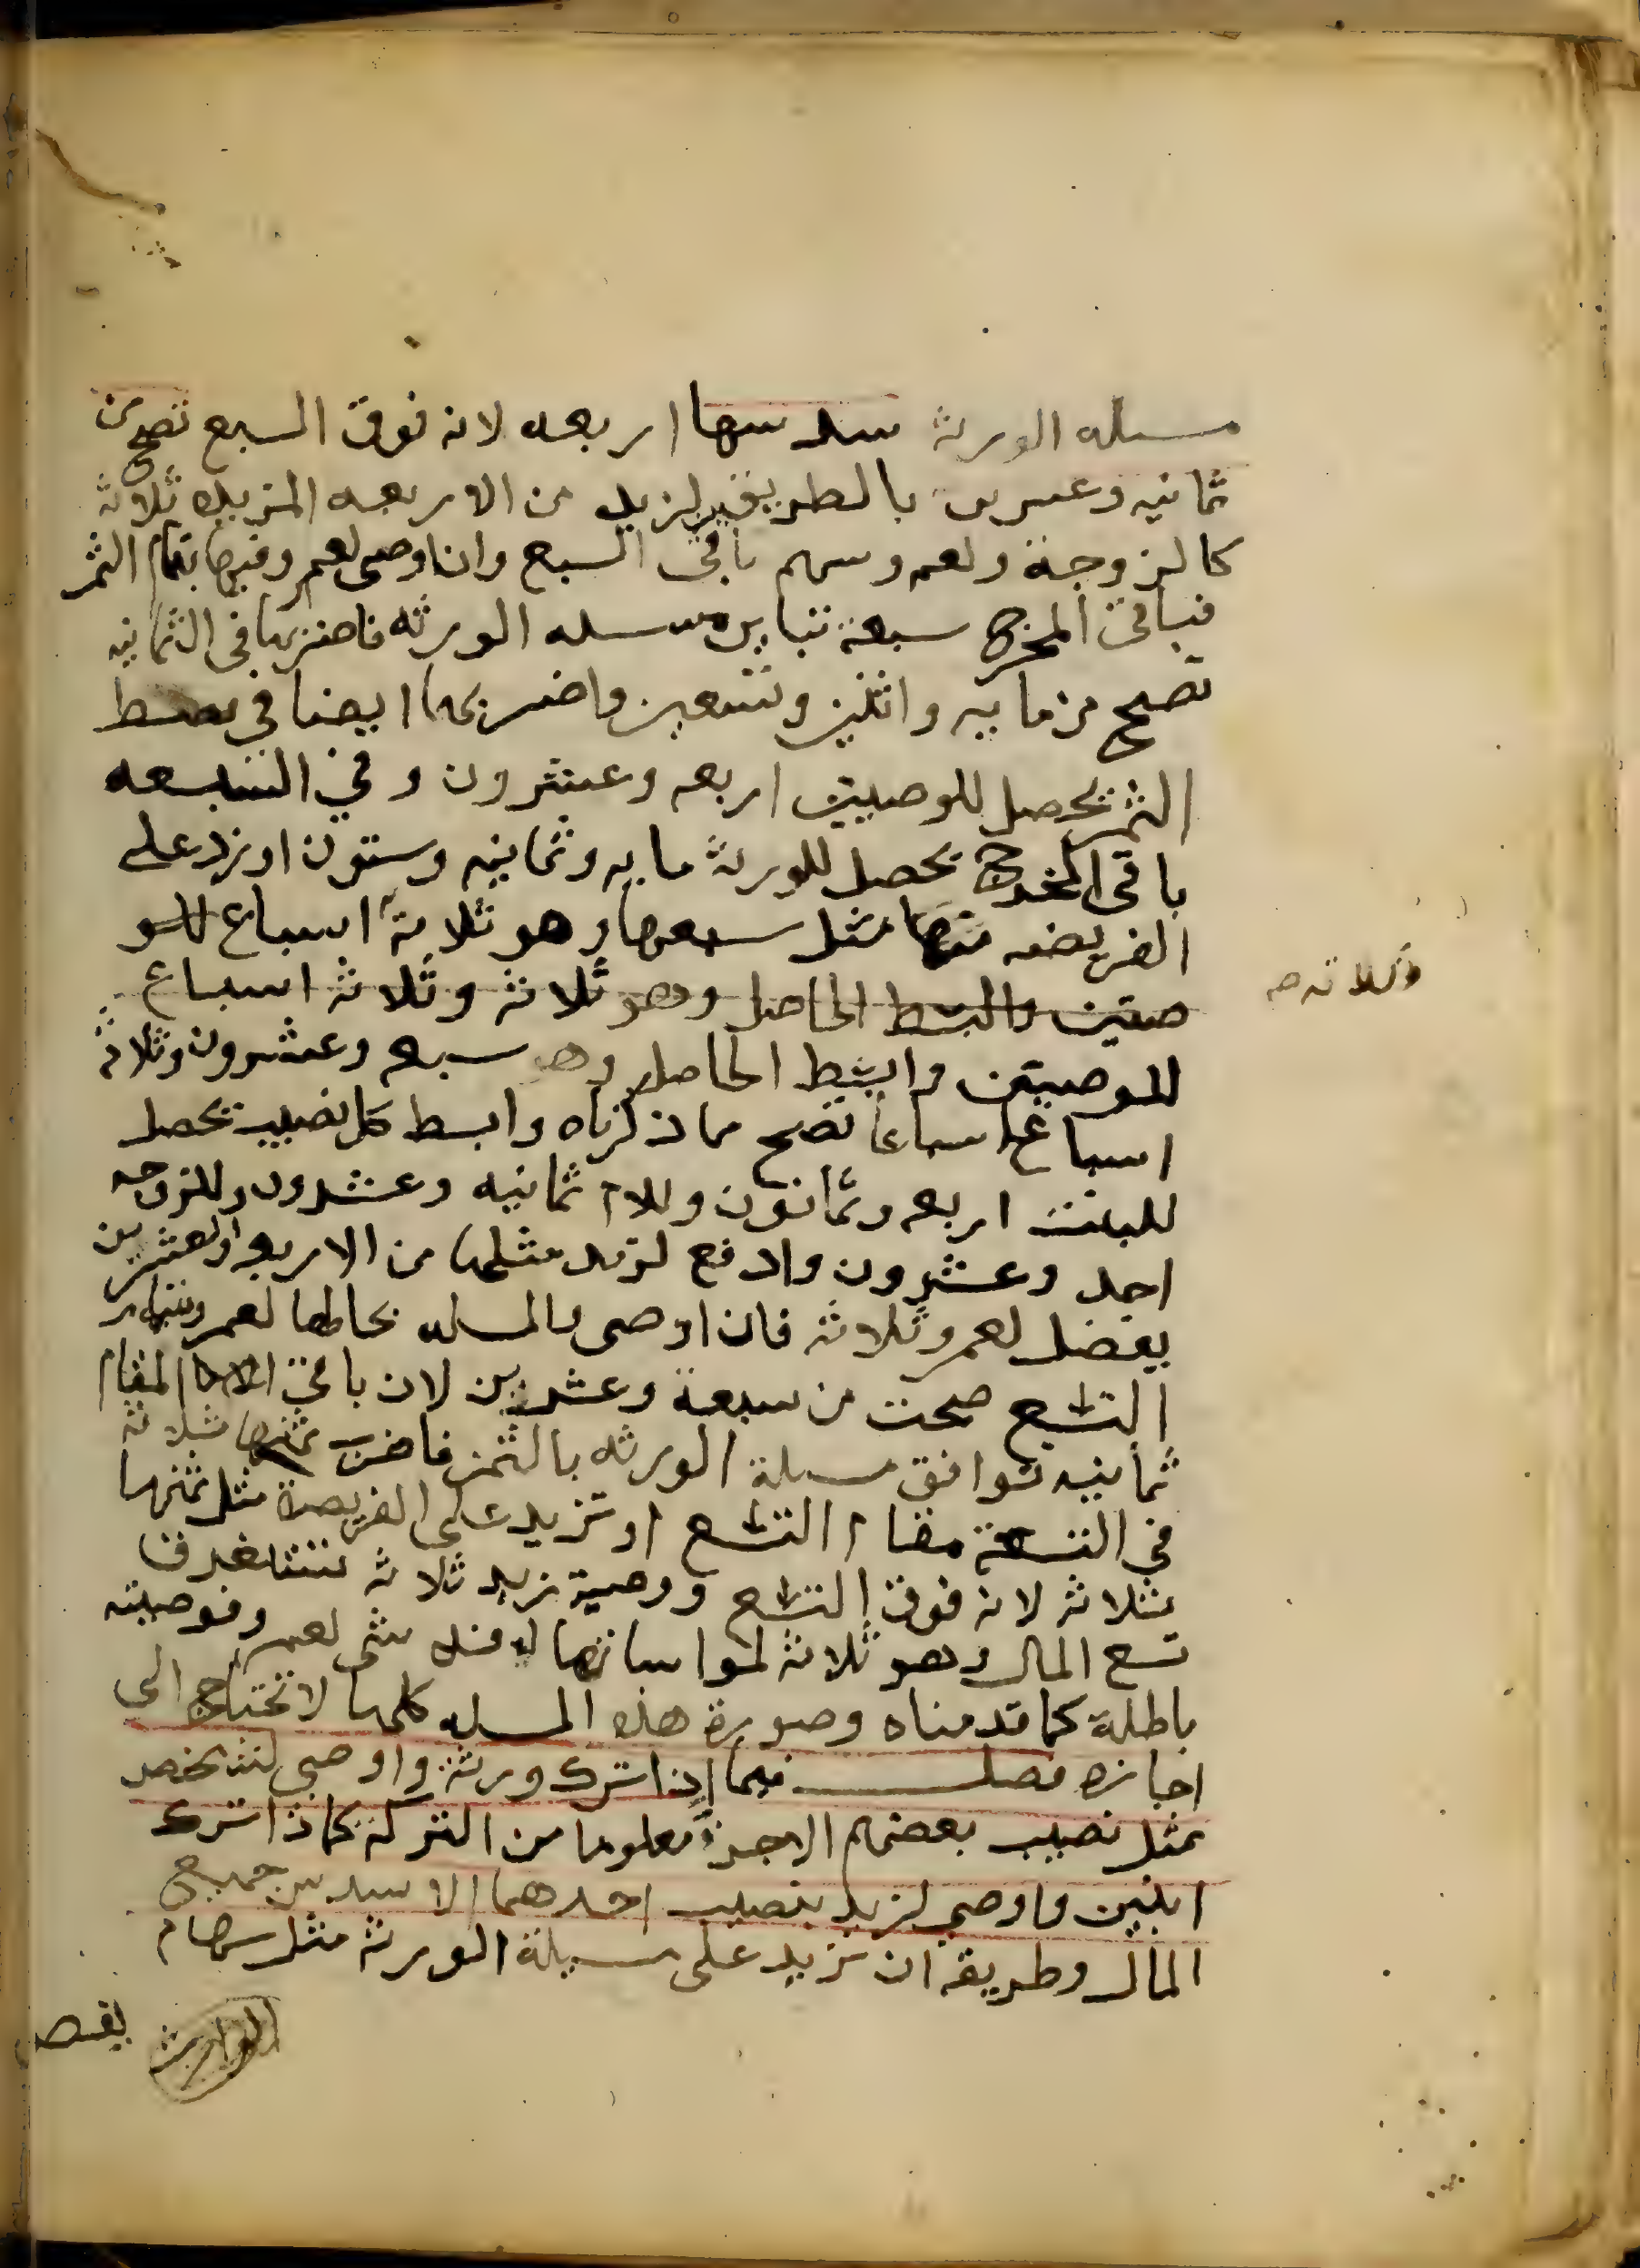 مسله الورثة سدسها اربعه لانه فوق السبع تصح من
ثمانيه وعسرىں بالطريقين لزيد من الاربعه المزيده ثلاثة
كالزوجة ولعمرو سهم باقي السبع وان اوصى لعمرو فيها بتمام الثمن
فباقي المخرج سبعة تباين مسله الورثه فاضربها في الثمانيه
تصح من مايه واثنين وتسعين واضربها ايضا في بسط
الثمن يحصل للوصيتين اربعه وعشرون وفي السبعه
باقي المخرج يحصل للورثة مايه وثمانيه وستون او زد على
الفريضه منها مثل سبعها وهو ثلاثة اسباع للو
صيتين والبسط الحاصل وهو ثلاثة وثلاثة اسباع
وثلاثه صح
للموصيتين وابسط الحاصل وهو سبعه وعشرون وثلاثة
اسباع اسباعا تصح مما ذكرناه وابسط كل نصيب يحصل
للبنت اربعه وثمانون وللام ثمانيه وعشرون وللزوجه
احد وعشرون وادفع لزيد مثلها من الاربعه والعشرين
يفضل لعمرو ثلاثة فان اوصى بالمسله بحالها لعمرو بتمام
التسع صحت من سبعة وعشرين لان باقي المقام
ثمانيه توافق مسلة الورثه بالثمن فاضرب ثمنها ثلاثة
في التسعة مقام التسع او تزيد على الفريضة مثل ثمنها
بثلاثة لانه فوق التسع ووصية زيد ثلاثة تستغرق
تسع المال وهو ثلاثة لمواساتها له شى لعمرو فوصيته
باطلة كما قدمناه وصورة هذه المسله كلها لا تحتاج الى
اجازه فصل فيما اذا ترك ورثة واوصى لشخص
بمثل نصيب بعضهم الا جزءً معلوما من التركة كما اذا ترك
ابنين واوصى لزيد بنصيب احدهما الا سدس جميع
المال وطريقه ان تزيد على مسيلة الورثة مثل سهام
الوارث